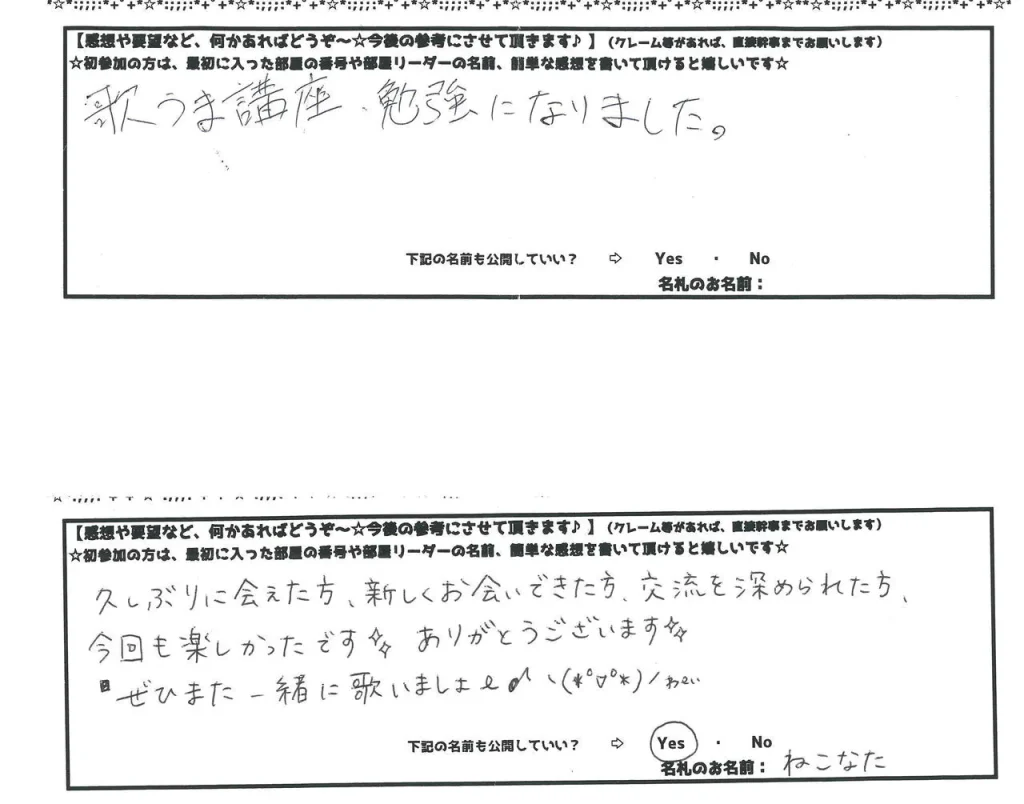 【感想や要望など、何かあればどうぞ～☆今後の参考にさせて頂きます♪】（クレーム等があれば、直接幹事までお願いします）
☆初参加の方は、最初に入った部屋の番号や部屋リーダーの名前、簡単な感想を書いて頂けると嬉しいです☆
歌うま講座、勉強になりました。
下記の名前も公開していい？ ⇨ Yes ・ No
名札のお名前：
【感想や要望など、何かあればどうぞ～☆今後の参考にさせて頂きます♪】（クレーム等があれば、直接幹事までお願いします）
☆初参加の方は、最初に入った部屋の番号や部屋リーダーの名前、簡単な感想を書いて頂けると嬉しいです☆
久しぶりに会えた方、新しくお会いできた方、交流を深められた方、
今回も楽しかったです✨ ありがとうございます✨
ぜひまた一緒に歌いましょ ヽ(*°▽°*)ノ わぁい
下記の名前も公開していい？ ⇨ Yes ・ No
名札のお名前： ねこなた